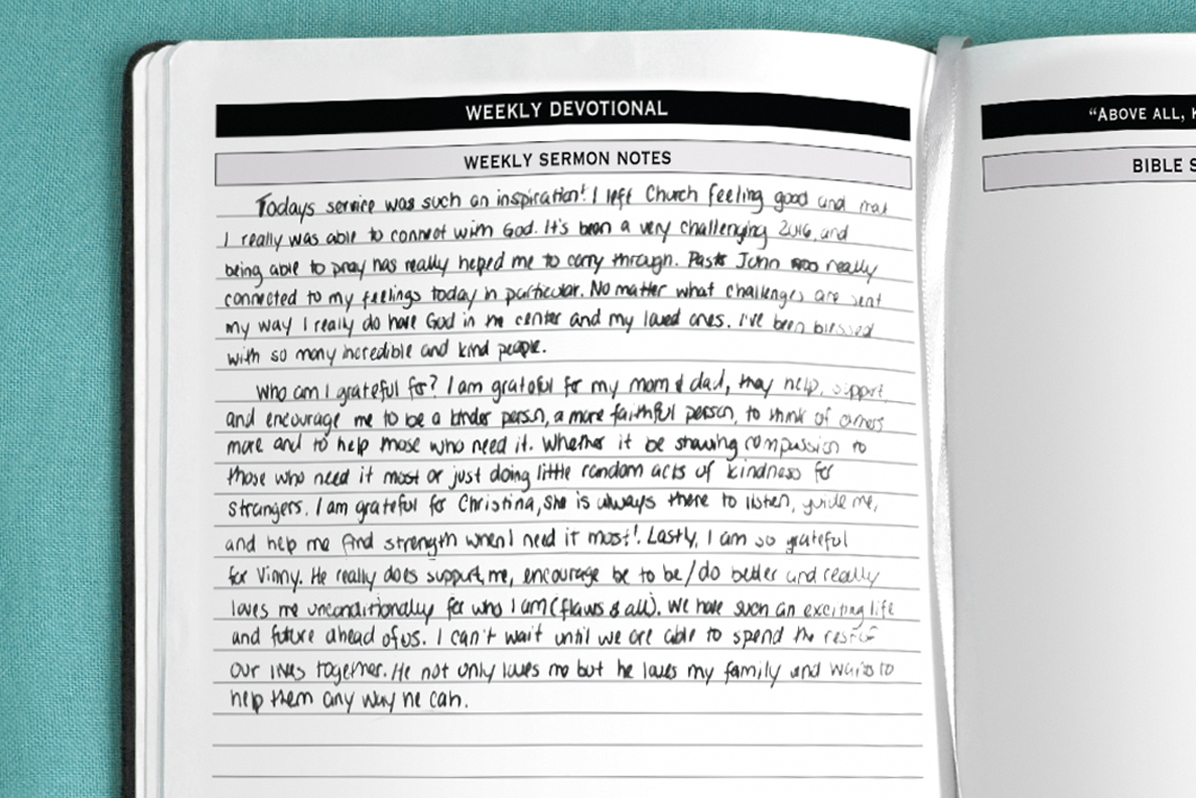 WEEKLY DEVOTIONAL
WEEKLY SERMON NOTES
Todays service was such an inspiration! I left Church feeling good and that
I really was able to connect with God. It's been a very challenging 2016, and
being able to pray has really helped me to carry through. Past John really
connected to my feelings today in particular. No matter what challenges are sent
my way I really do have God in the center and my loved ones. I've been blessed
with so many incredible and kind people.
Who am I grateful for? I am grateful for my mom & dad, they help, support,
and encourage me to be a kinder person, a more faithful person, to think of others
more and to help those who need it. Whether it be showing compassion to
those who need it most or just doing little random acts of kindness for
strangers. I am grateful for Christina, she is always there to listen, guide me,
and help me find strength when I need it most! Lastly, I am so grateful
for Vinny. He really does support me, encourage be to be/do better and really
loves me unconditionally for who I am (flaws & all). We have such an exciting life
and future ahead of us. I can't wait until we are able to spend the rest of
our lives together. He not only loves me but he loves my family and wants to
help them any way he can.
"ABOVE ALL, K
BIBLE S